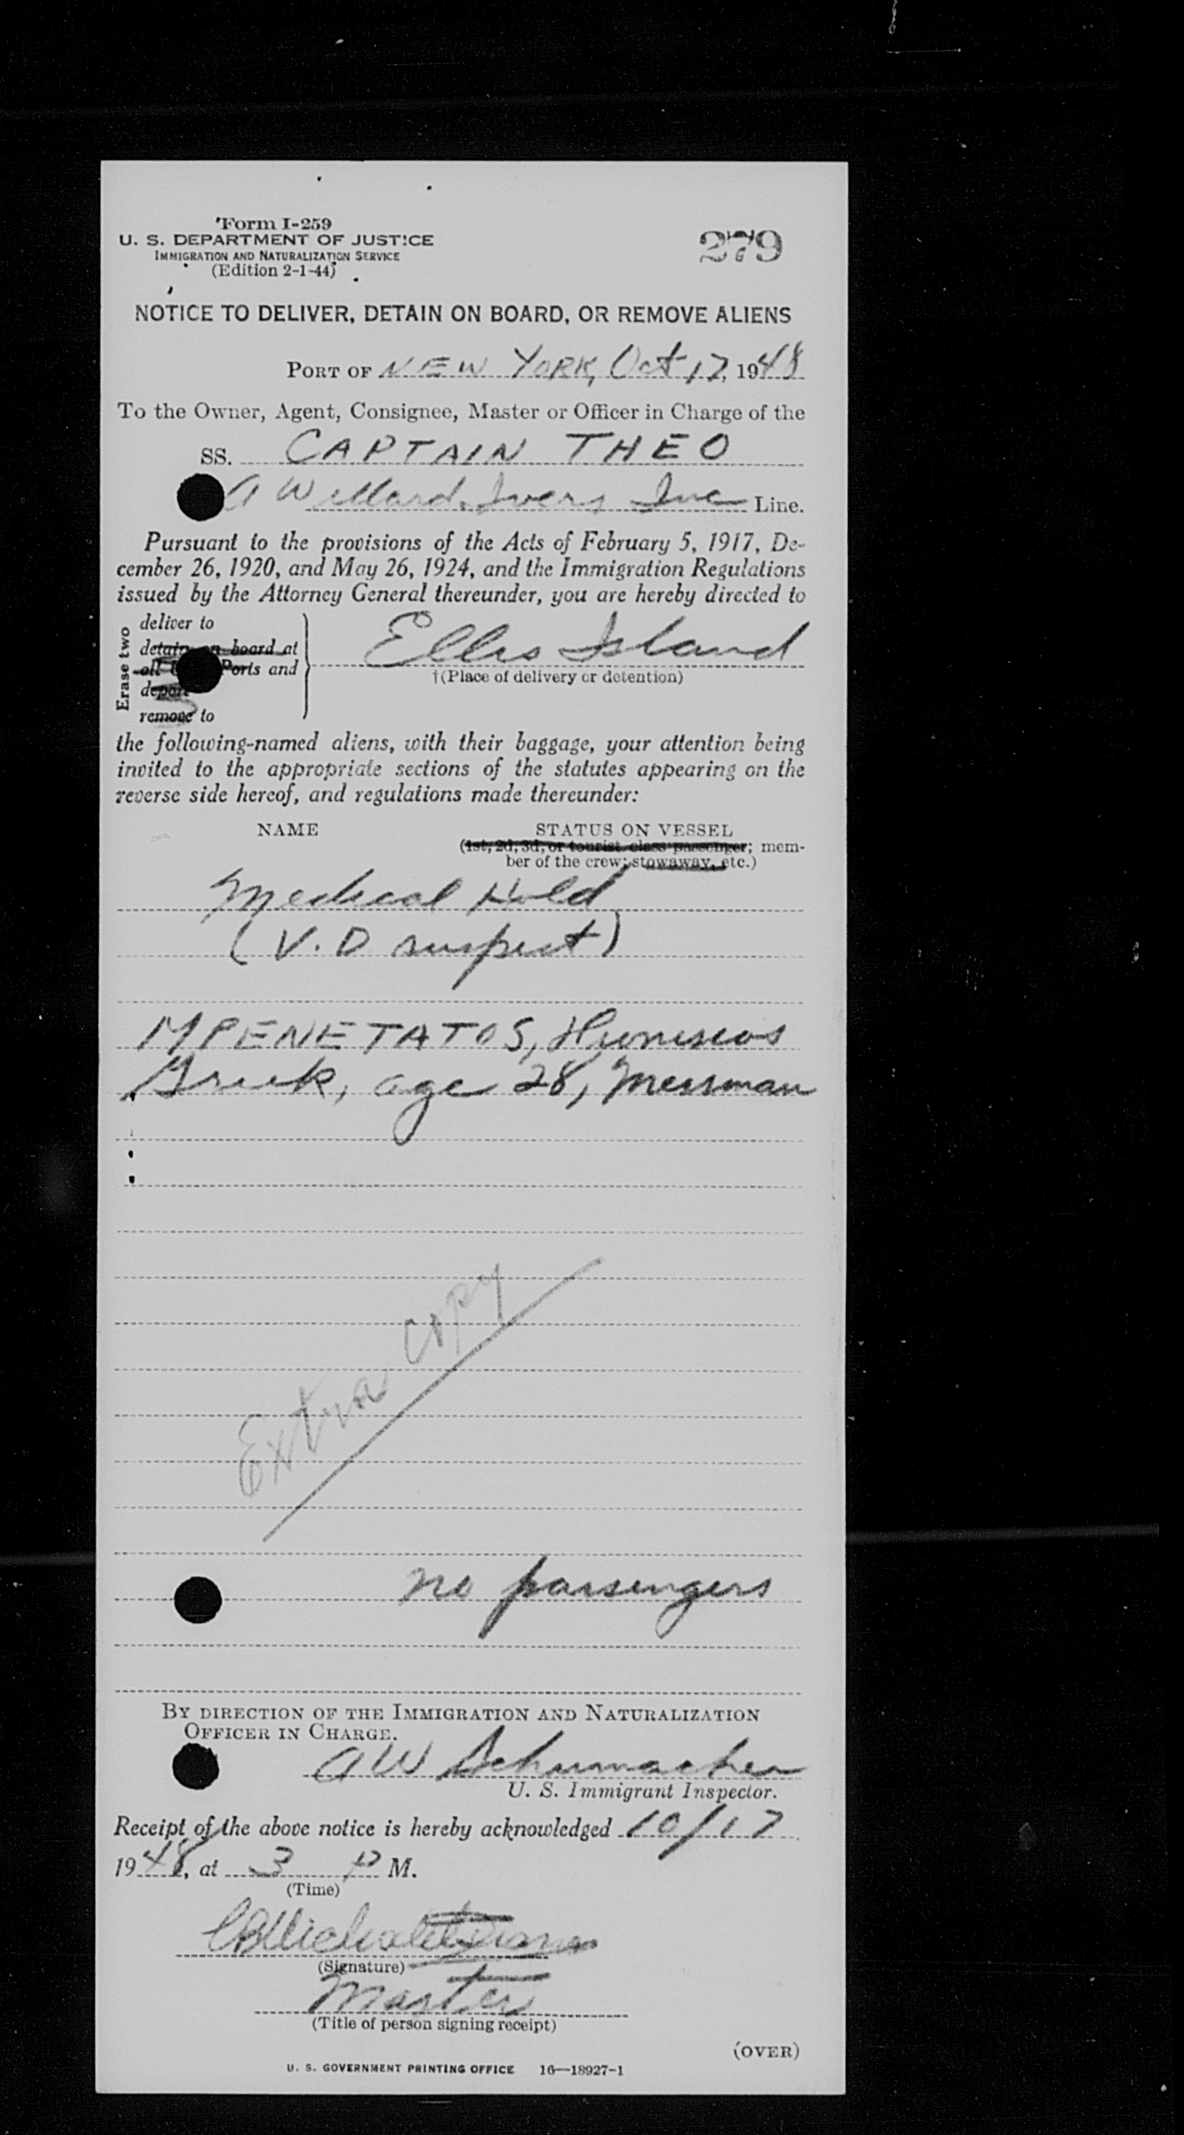 Form I-259
U. S. DEPARTMENT OF JUSTICE
IMMIGRATION AND NATURALIZATION SERVICE
(Edition 2-1-44)
279
NOTICE TO DELIVER, DETAIN ON BOARD, OR REMOVE ALIENS
PORT OF NEW YORK, Oct 17, 1948
To the Owner, Agent, Consignee, Master or Officer in Charge of the
SS. CAPTAIN THEO
A Willard Ivers Inc Line.
Pursuant to the provisions of the Acts of February 5, 1917, De-
cember 26, 1920, and May 26, 1924, and the Immigration Regulations
issued by the Attorney General thereunder, you are hereby directed to
Erase two
deliver to
detain on board at
all Ports and
deport
remove to
Ellis Island
†(Place of delivery or detention)
the following-named aliens, with their baggage, your attention being
invited to the appropriate sections of the statutes appearing on the
reverse side hereof, and regulations made thereunder:
NAME STATUS ON VESSEL
(1st, 2d, 3d, or tourist class passenger; mem-
ber of the crew; stowaway, etc.)
Medical Hold
(V.D suspect)
MPENETATOS, Dionisios
Greek, age 28, Messman
Extra copy
no passengers
BY DIRECTION OF THE IMMIGRATION AND NATURALIZATION
OFFICER IN CHARGE.
A W Schumacher
U. S. Immigrant Inspector.
Receipt of the above notice is hereby acknowledged 10/17
1948, at 3 P M.
(Time)
(Signature)
Master
(Title of person signing receipt)
(OVER)
U. S. GOVERNMENT PRINTING OFFICE 16—18927-1